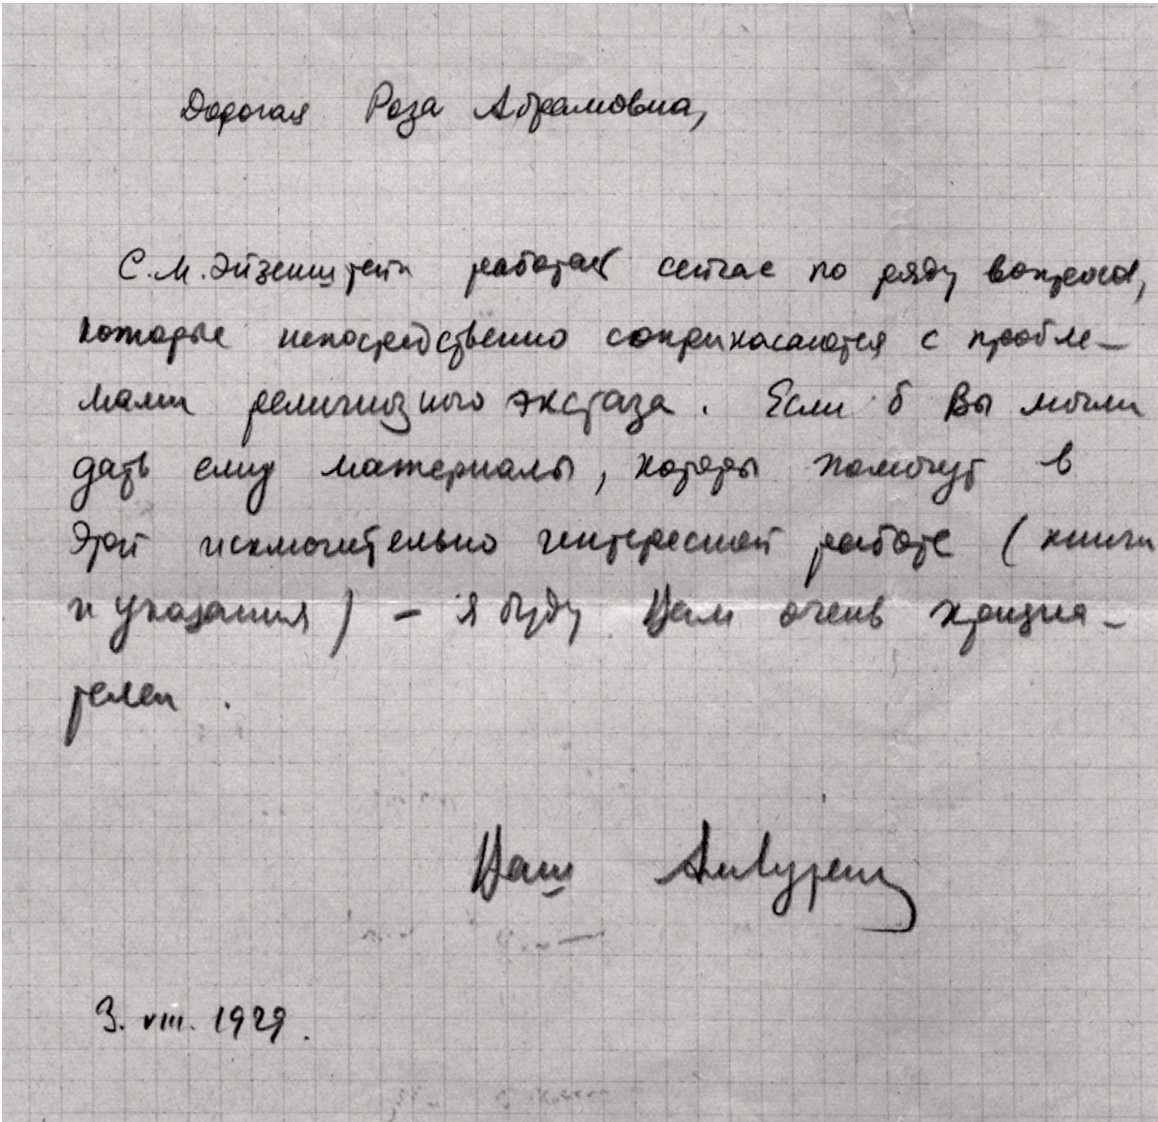 Дорогая Роза Абрамовна,
С.М. Эйзенштейн работает сейчас по ряду вопросов,
которые непосредственно соприкасаются с пробле-
мами религиозного экстаза. Если б Вы могли
дать ему материалы, которы помогут в
этой исключительно интересной работе (книги
и указания) – я буду Вам очень признა-
телен.
Ваш
3. VIII. 1929.